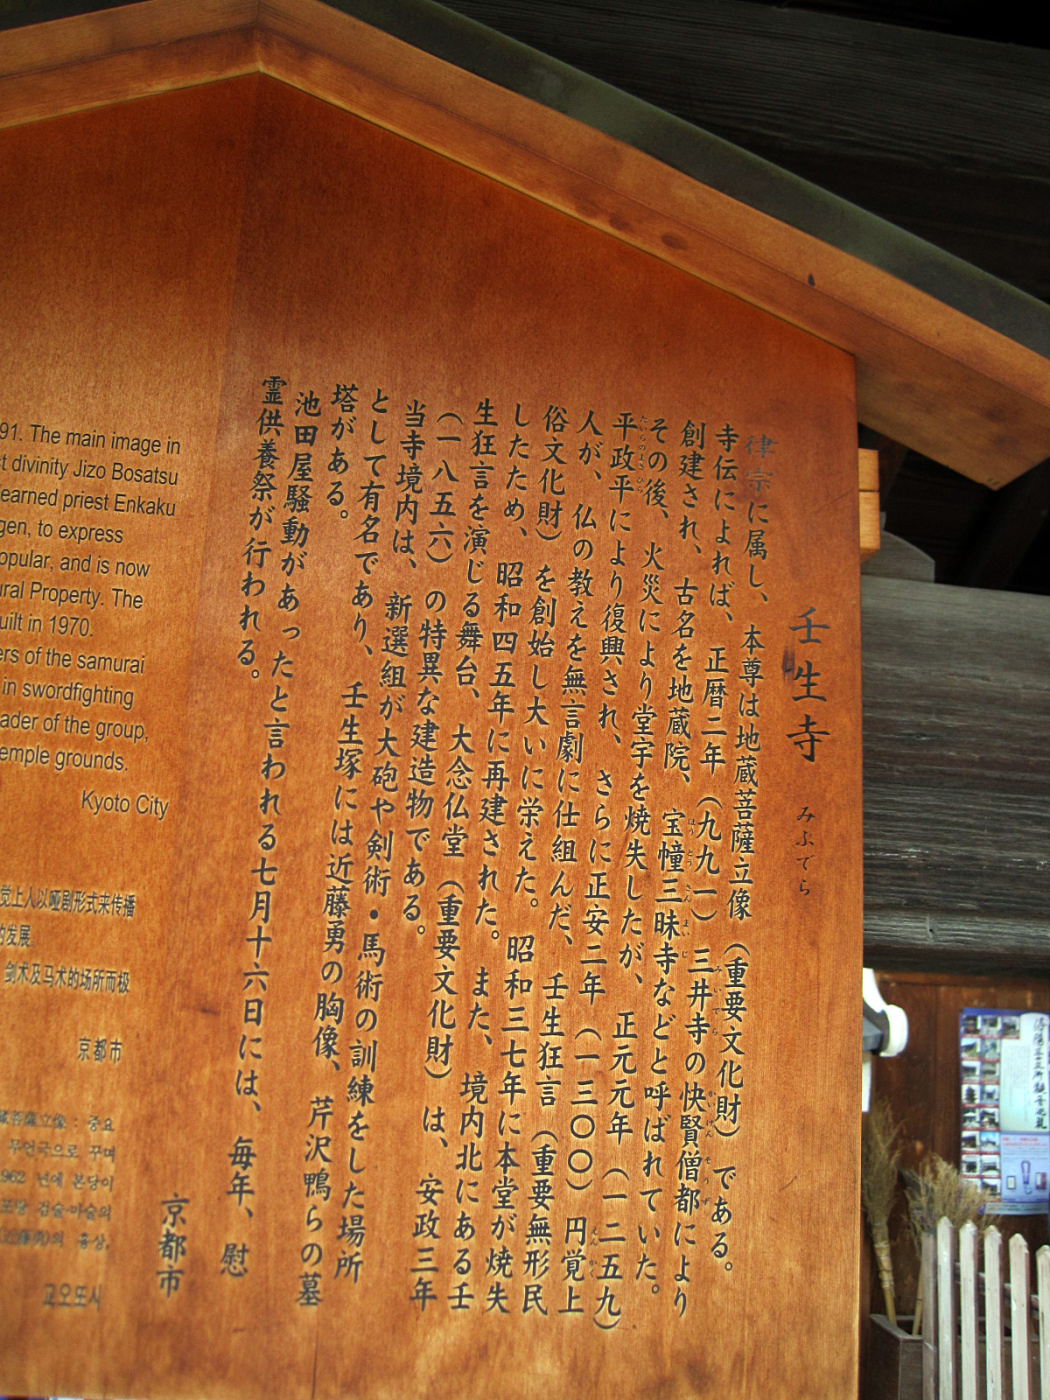 壬生寺 みぶでら
律宗に属し、本尊は地蔵菩薩立像(重要文化財)である。
寺伝によれば、正暦二年(九九一)三井寺の快賢僧都により
創建され、古名を地蔵院、宝幢三昧寺などと呼ばれていた。
その後、火災により堂宇を焼失したが、正元元年(一二五九)
平政平により復興され、さらに正安二年(一三〇〇)円覚上
人が、仏の教えを無言劇に仕組んだ、壬生狂言(重要無形民
俗文化財)を創始し大いに栄えた。昭和三七年に本堂が焼失
したため、昭和四五年に再建された。また、境内北にある壬
生狂言を演じる舞台、大念仏堂(重要文化財)は、安政三年
(一八五六)の特異な建造物である。
当寺境内は、新選組が大砲や剣術・馬術の訓練をした場所
として有名であり、壬生塚には近藤勇の胸像、芹沢鴨らの墓
塔がある。
池田屋騒動があったと言われる七月十六日には、毎年、慰
霊供養祭が行われる。
京都市
91. The main image in
st divinity Jizo Bosatsu
earned priest Enkaku
gen, to express
opular, and is now
ural Property. The
uilt in 1970.
ers of the samurai
in swordfighting
eader of the group,
emple grounds.
Kyoto City
觉上人以哑剧形式来传播
的发展
剑术及马术的场所而极
京都市
무언극으로 꾸며
1962 년에 본당이
교오또시